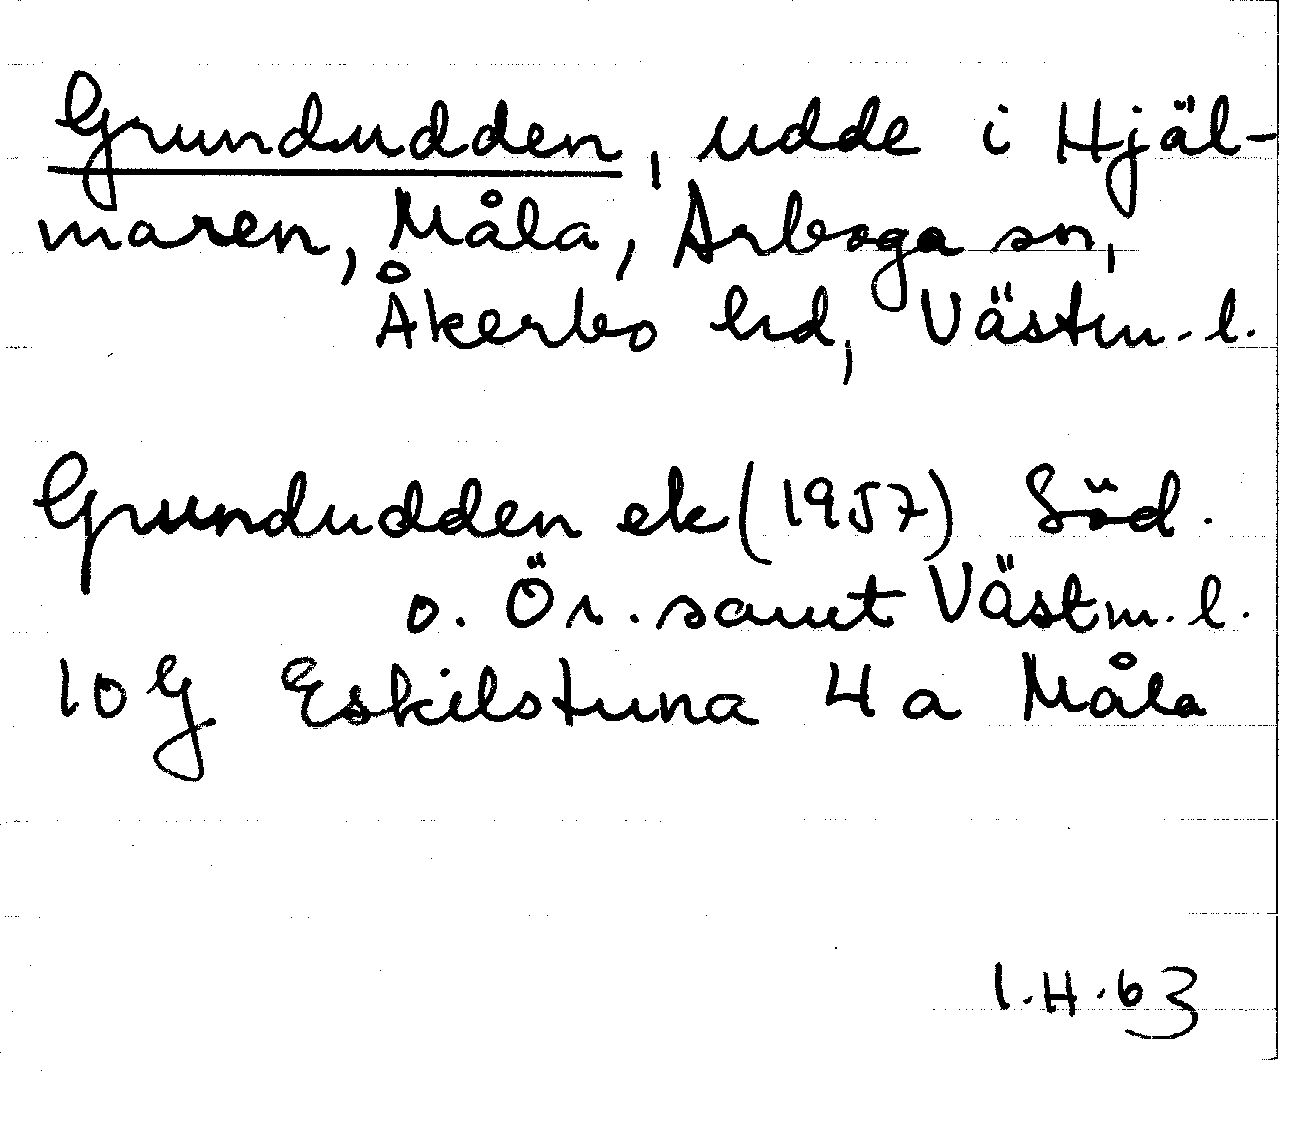 Grundudden, udde i Hjäl-
maren, Måla, Arboga sn,
Åkerbo hd, Västm. l.
Grundudden ek (1957) Söd.
o. Ör. samt Västm. l.
10 g Eskilstuna 4 a Måla
I.H. 63